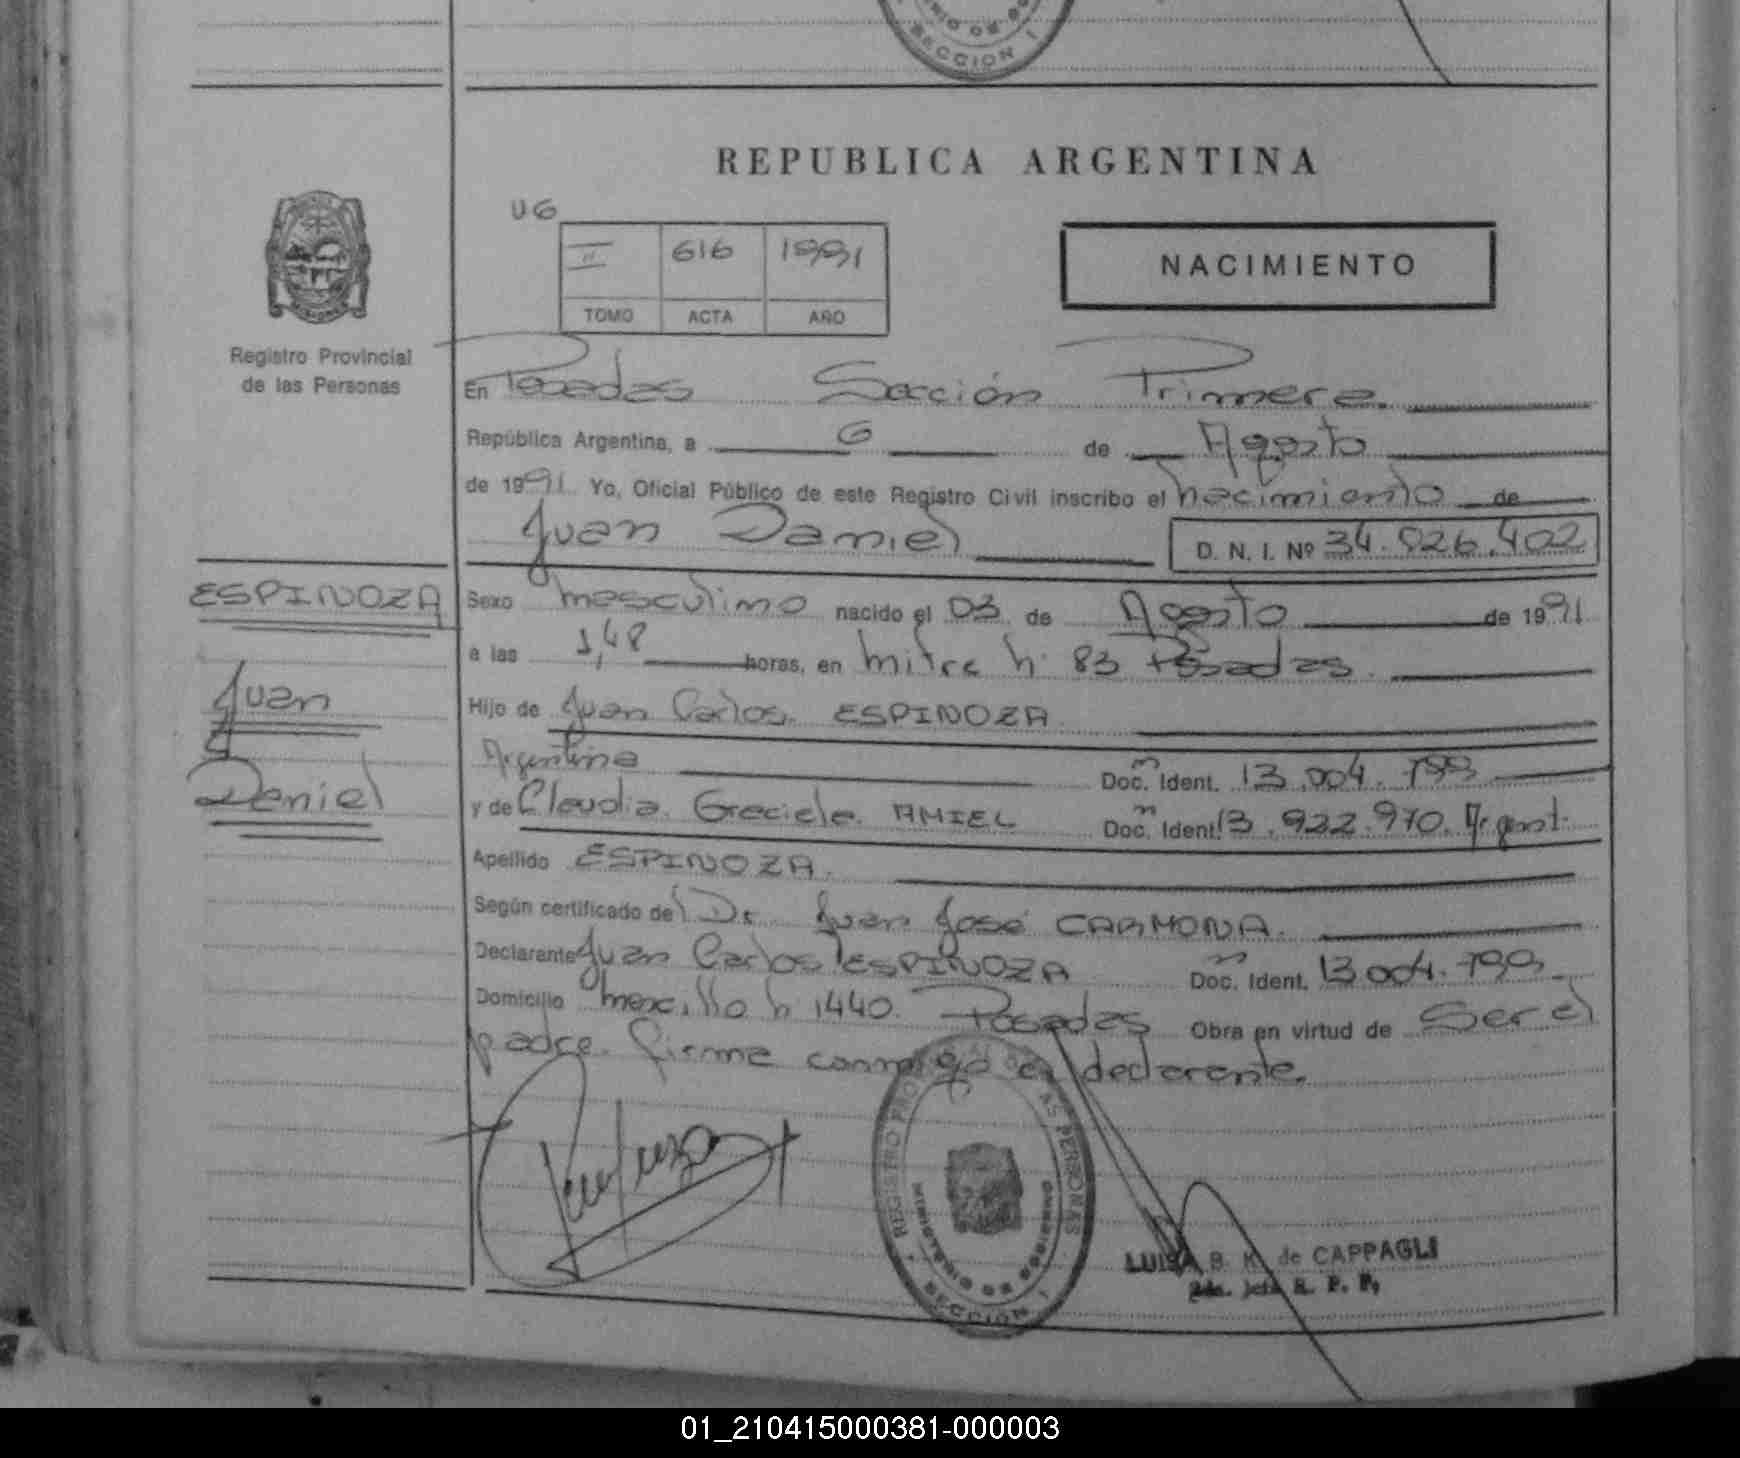 SECCION I
REPUBLICA ARGENTINA
UG
II 616 1991
TOMO ACTA AÑO
NACIMIENTO
Registro Provincial
de las Personas
En Posadas Sección Primera.
República Argentina, a 6 de Agosto
de 1991 Yo, Oficial Público de este Registro Civil inscribo el nacimiento de
Juan Daniel D. N. I. Nº 34.026.402
ESPINOZA
Juan
Daniel
Sexo masculino nacido el 03 de Agosto de 1991
a las 1,48 horas, en mitre n. 83 Posadas.
Hijo de Juan Carlos ESPINOZA
Argentina Doc. Ident. 13.004.799
y de Claudia Graciela AMIEL Doc. Ident. 13.922.970. Argent.
Apellido ESPINOZA.
Según certificado del Dr. Juan José CARMONA.
Declarante Juan Carlos ESPINOZA Doc. Ident. 13.004.799
Domicilio n 1440. Posadas Obra en virtud de Ser el
padre. firma conmigo el declarante.
REGISTRO PROVINCIAL DE LAS PERSONAS
MINISTERIO DE GOBIERNO
SECCION I
LUISA B. K. de CAPPAGLI
R. P. P.
01_210415000381-000003